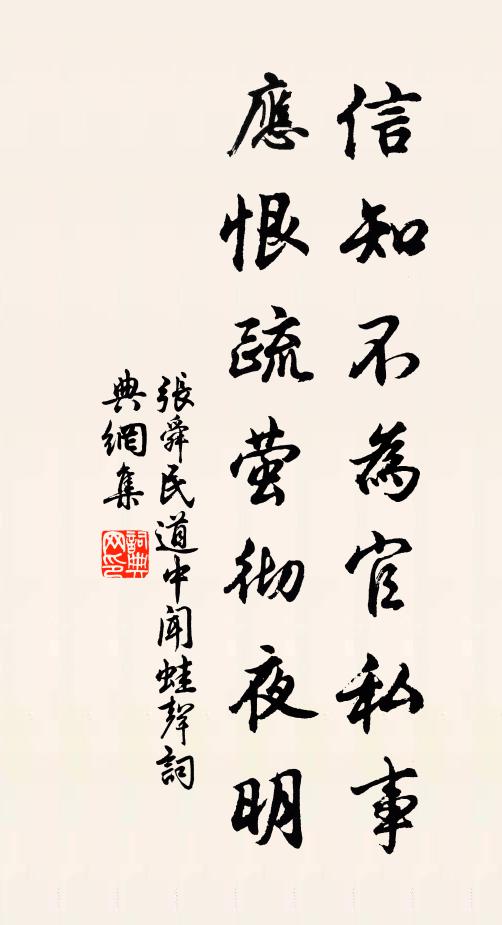 信知不為官私事
應恨疏萤彻夜明
張舜民道中聞蛙聲詞
典網集
詞典网印